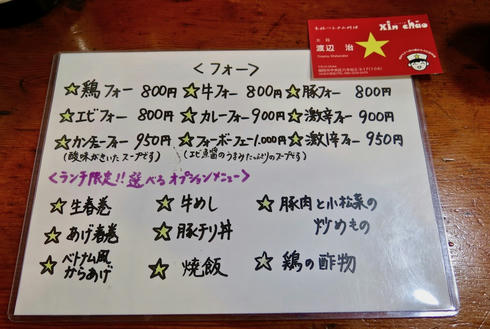 本格ベトナム料理
xin chào
渡辺 治
<フォー>
☆鶏フォー 800円 ☆牛フォー 800円 ☆豚フォー 800円
☆エビフォー 800円 ☆カレーフォー 900円 ☆激辛フォー 900円
☆カンチューフォー 950円 ☆フォーボーフェー 1.000円 ☆激辛フォー 950円
(酸味がきいたスープです) (エビ点醤のうまみたっぷりのスープです)
<ランチ限定!!選べるオプションメニュー>
☆生春巻 ☆牛めし ☆豚肉と小松菜の
炒めもの
☆あげ春巻 ☆豚チリ丼
☆ベトナム風
からあげ ☆焼飯 ☆鶏の酢物